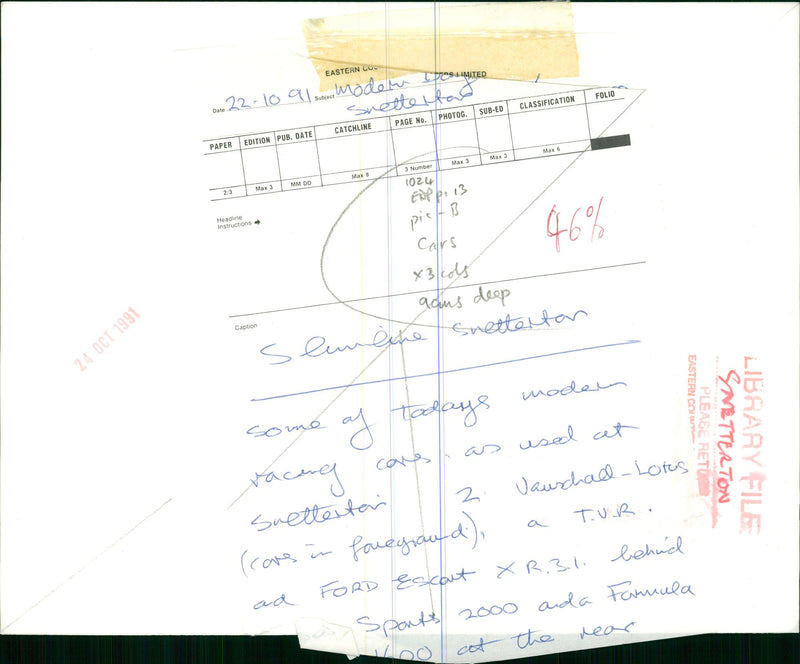 EASTERN COU
RS LIMITED
Date 22-10-91 Subject Modern Day
Snetterton
PAPER EDITION PUB. DATE CATCHLINE PAGE No. PHOTOG. SUB-ED CLASSIFICATION FOLIO
2/3 Max 3 MM DD Max 8 3 Number Max 3 Max 3 Max 6
Headline
Instructions
1024
EDP p. 13
pic - B
Cars
x 3 cols
9cms deep
46%
Caption
Slimline Snetterton
Some of todays modern
racing cars. as used at
Snetterton 2 Vauxhall-Lotus
(cars in foreground), a T.V.R.
ad FORD Escort X R.3.I. behind
Sports 2000 and a Formula
1600 at the rear
24 OCT 1991
LIBRARY FILE
SNETTERTON
PLEASE RETU
EASTERN COU